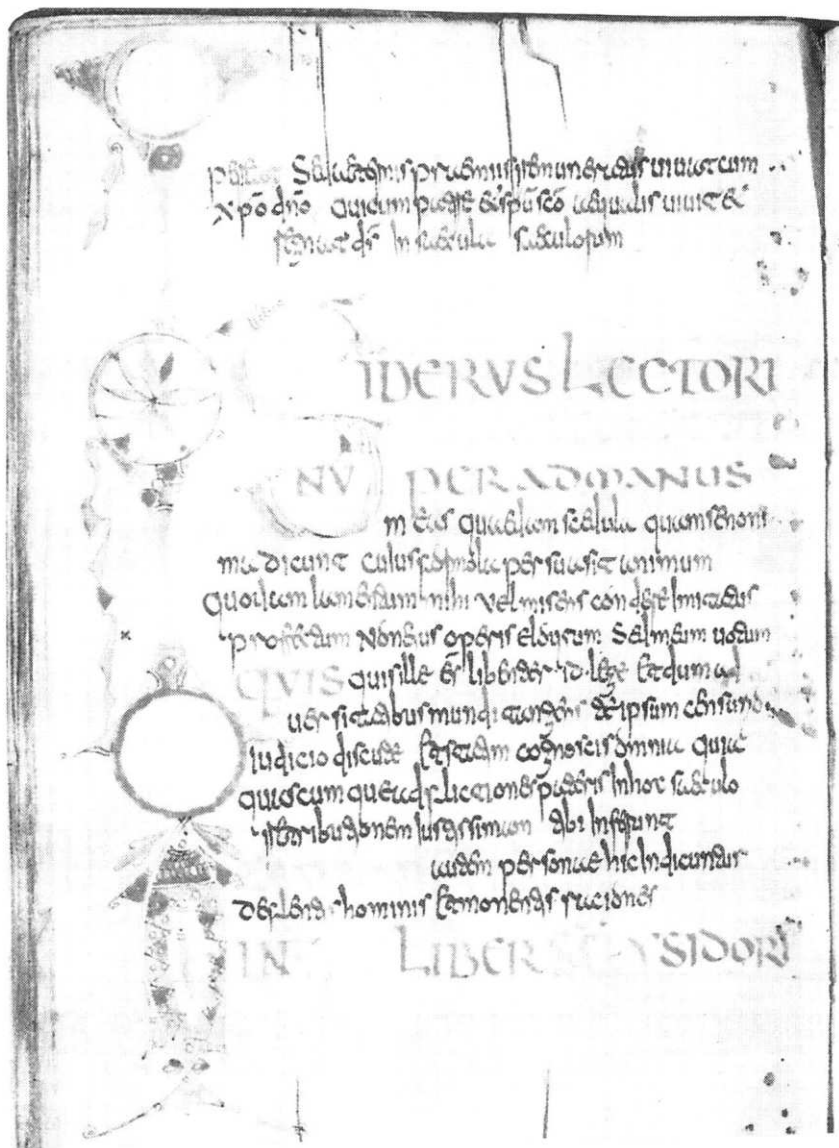 aeternis praemiis remuneratus uiuat cum
xpo dno qui cum patre et spu sco aequalis uiuit et
regnat ds In saecula saeculorum
IDERVS LECTORI
NV PER AD MANUS
meas quaedam scedula quam senoni
ma dicunt cuius formola persuasit animum
quoddam lamentum mihi vel miseris condere Imitatus
profectum Non eius operis sed meum uotum
QVIS quis ille es libenter id lege et dum ad
uersitatibus mundi tangeris te ipsum
Iudicio discute et statim cognoscis omnia quia
quascumque adflictiones pateris In hoc saeculo
retributionem Iustissimam tibi Inferunt
autem personae hic Indicuntur
deflentis hominis et monentis racionis
IN LIBER YSIDORI